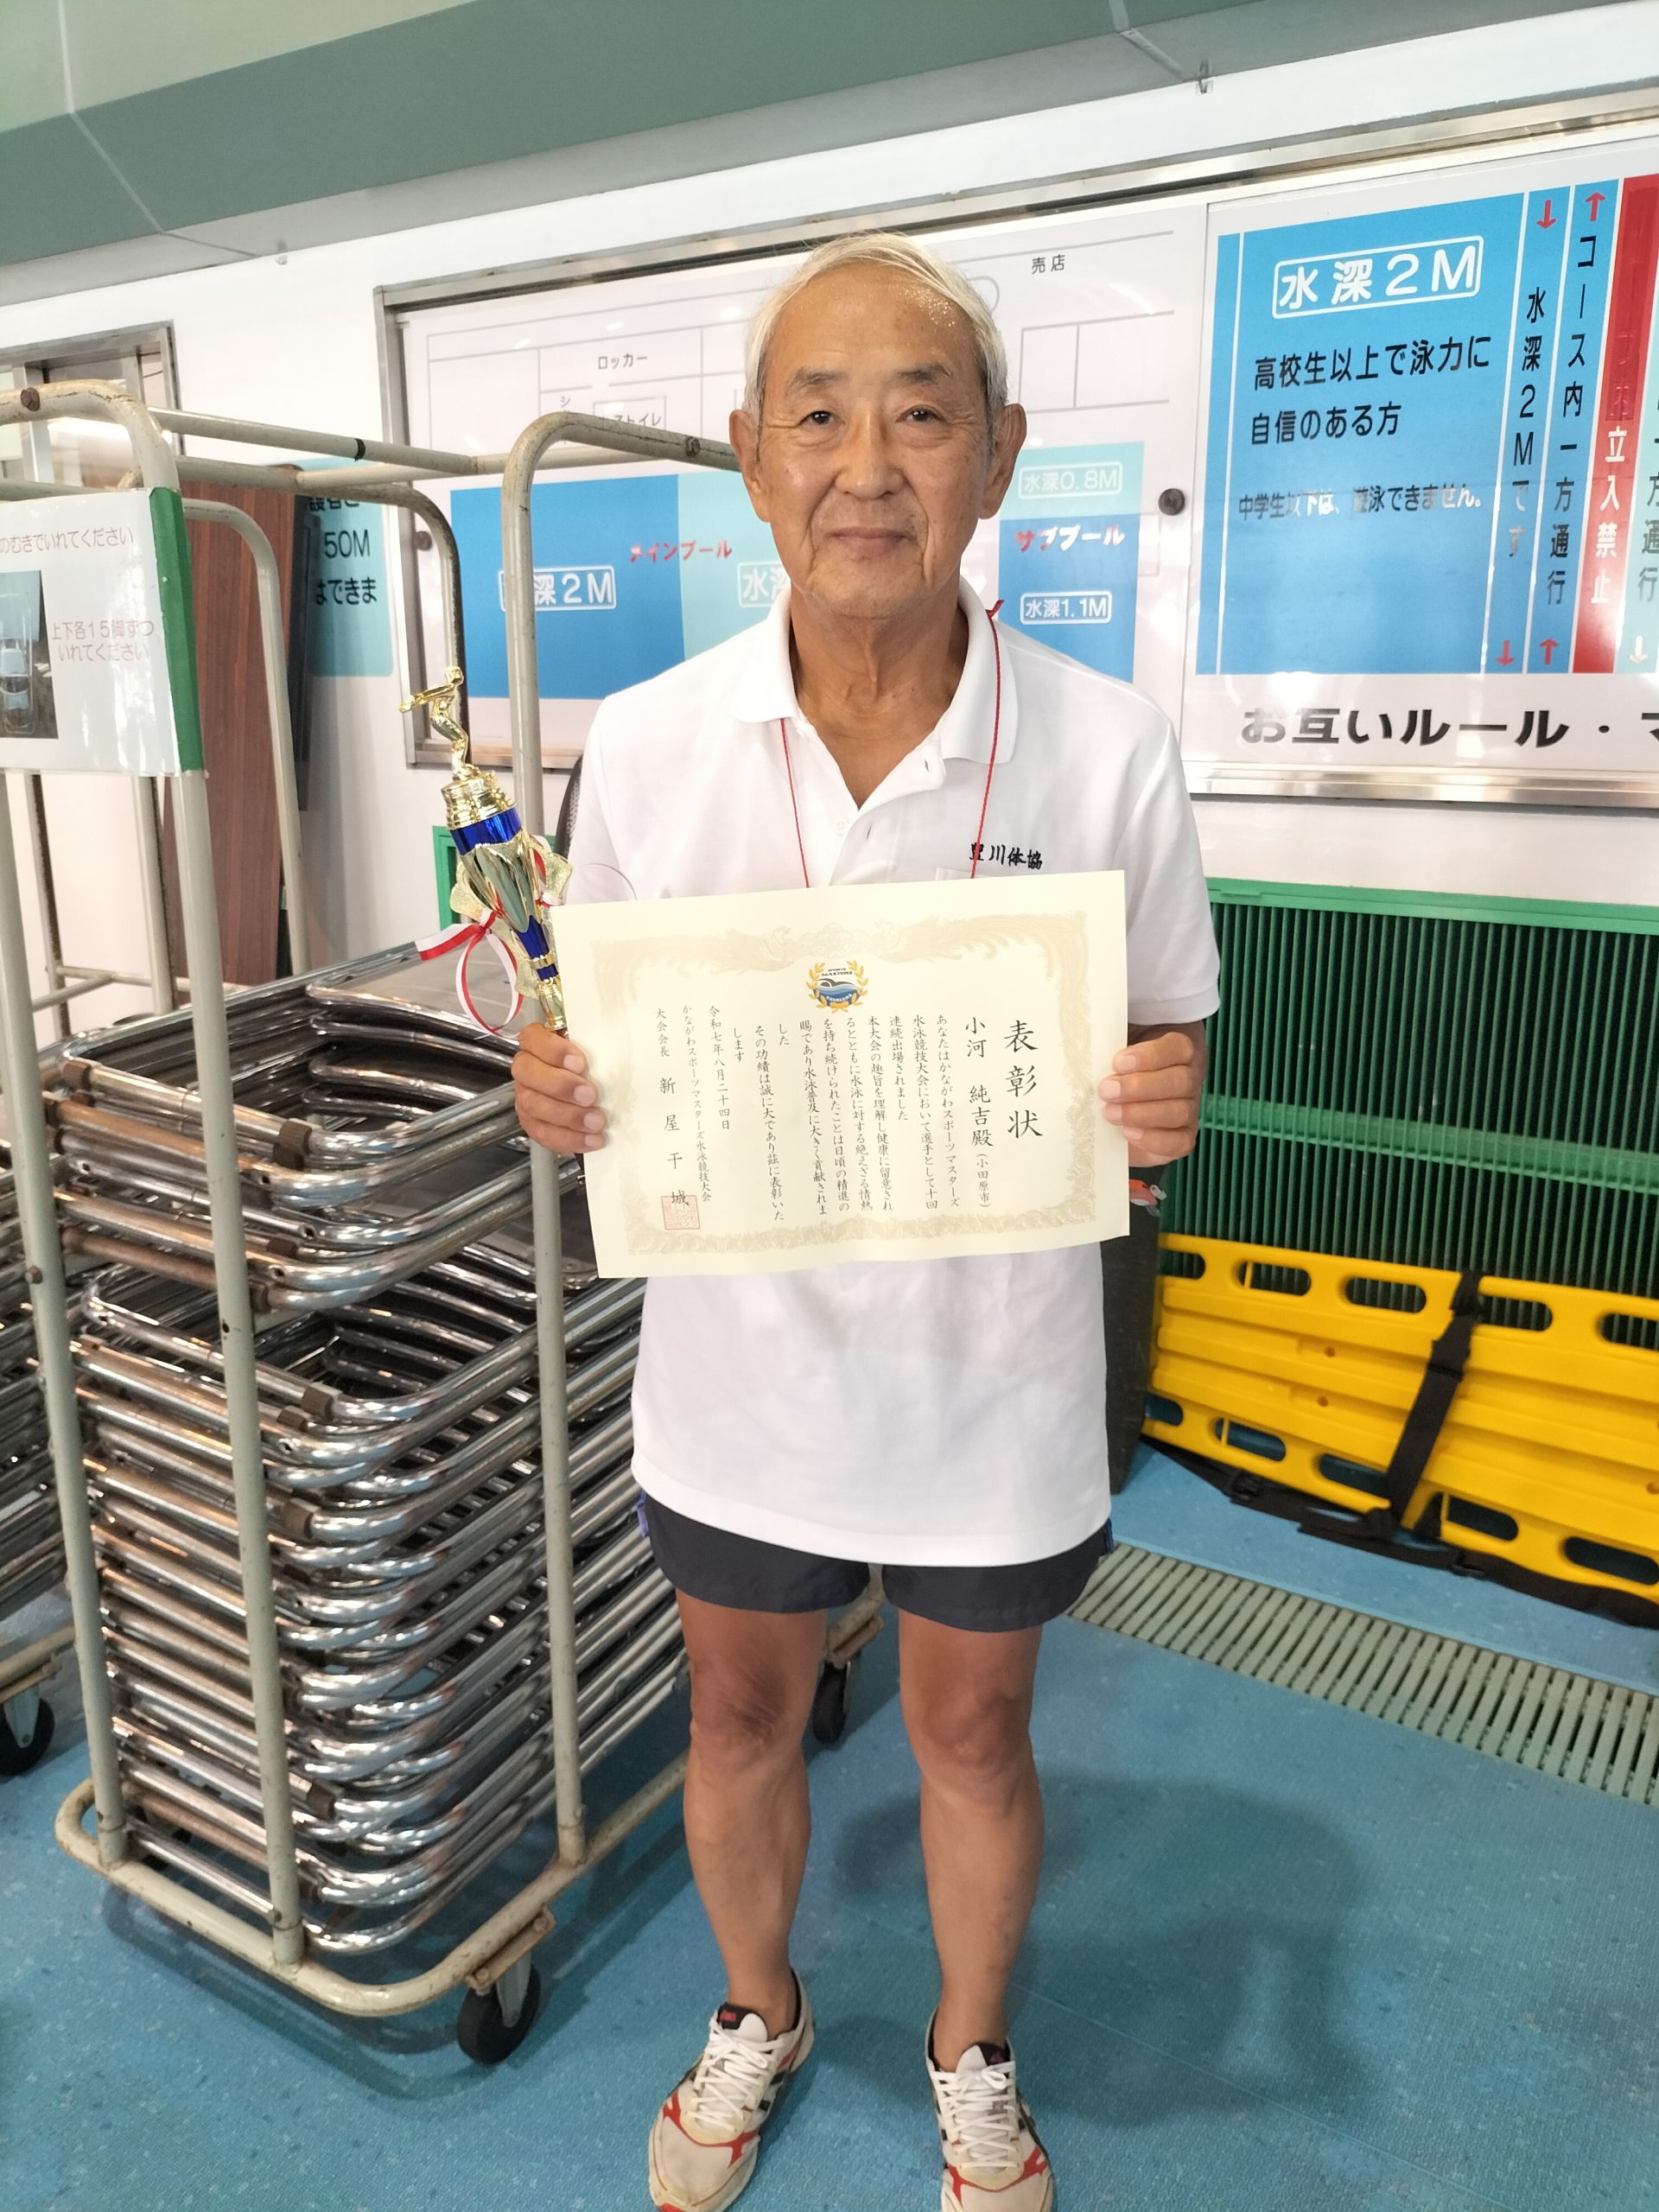 売店
ロッカー
水深0.8M
メインプール
サブプール
深2M
水深1.1M
水深2M
高校生以上で泳力に
自信のある方
中学生以下は、遊泳できません。
水深2Mです
コース内一方通行
立入禁止
方通行
お互いルール・マ
50M
はできま
のむきでいれてください
上下各15脚ずつ
いれてください
豊川体協
表彰状
小河 純吉殿(小田原市)
あなたはかながわスポーツマスターズ
水泳競技大会において選手として十回
連続出場されました
本大会の趣旨を理解し健康に留意され
るとともに水泳に対する絶えざる情熱
を持ち続けられたことは日頃の精進の
賜であり水泳普及に大きく貢献されま
した
その功績は誠に大であり茲に表彰いた
します
令和七年八月二十四日
かながわスポーツマスターズ水泳競技大会
大会会長 新屋千城